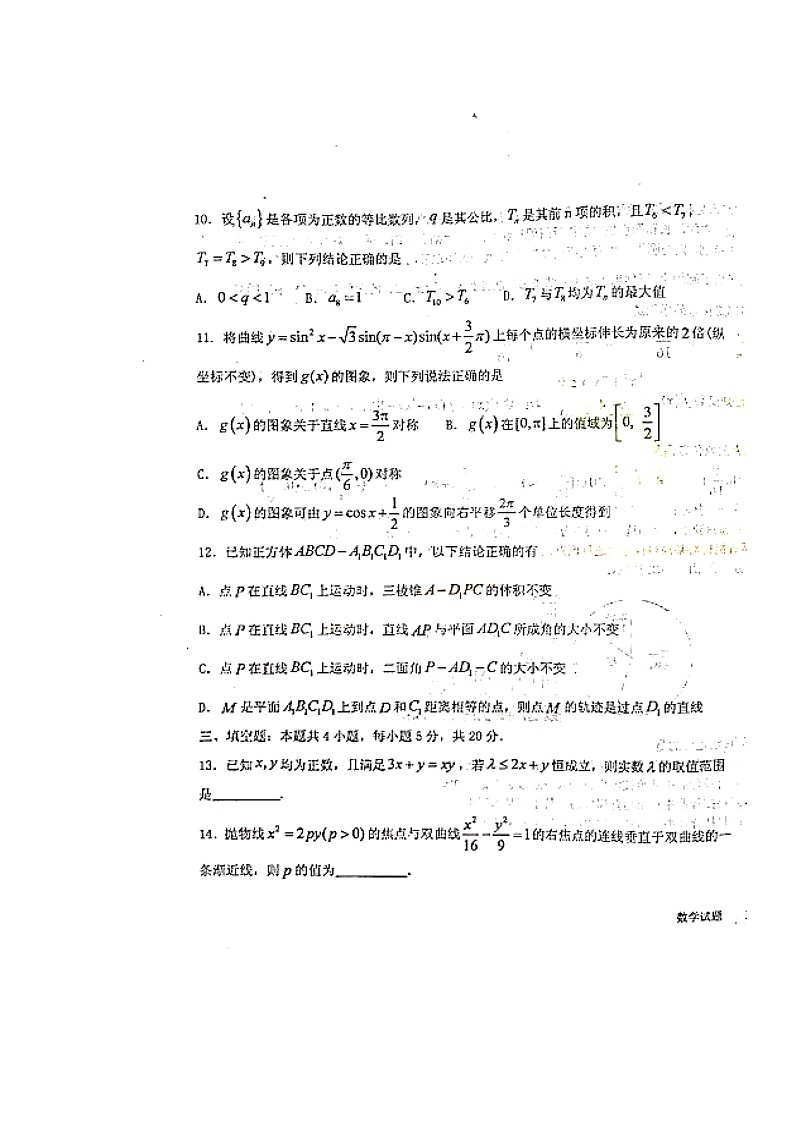 10. 设{aₙ}是各项为正数的等比数列, q 是其公比, Tₙ是其前 n 项的积, 且T₆<T₇,
T₇=T₈>T₉, 则下列结论正确的是
A. 0<q<1 B. a₈=1 C. T₁₀>T₆ D. T₇与T₈均为Tₙ的最大值
11. 将曲线 y=sin²x-√3sin(π-x)sin(x+3/2π)上每个点的横坐标伸长为原来的2倍(纵
坐标不变), 得到g(x)的图象, 则下列说法正确的是
A. g(x)的图象关于直线x=3π/2对称 B. g(x)在[0,π]上的值域为[0, 3/2]
C. g(x)的图象关于点(π/6,0)对称
D. g(x)的图象可由y=cosx+1/2的图象向右平移2π/3个单位长度得到
12. 已知正方体ABCD-A₁B₁C₁D₁中, 以下结论正确的有
A. 点P在直线BC₁上运动时, 三棱锥A-D₁PC的体积不变
B. 点P在直线BC₁上运动时, 直线AP与平面AD₁C所成角的大小不变
C. 点P在直线BC₁上运动时, 二面角P-AD₁-C的大小不变
D. M是平面A₁B₁C₁D₁上到点D和C₁距离相等的点, 则点M的轨迹是过点D₁的直线
三、填空题: 本题共4小题, 每小题5分, 共20分.
13. 已知x,y均为正数, 且满足3x+y=xy, 若λ≤2x+y恒成立, 则实数λ的取值范围
是________.
14. 抛物线x²=2py(p>0)的焦点与双曲线x²/16-y²/9=1的右焦点的连线垂直于双曲线的一
条渐近线, 则p的值为________.
数学试题